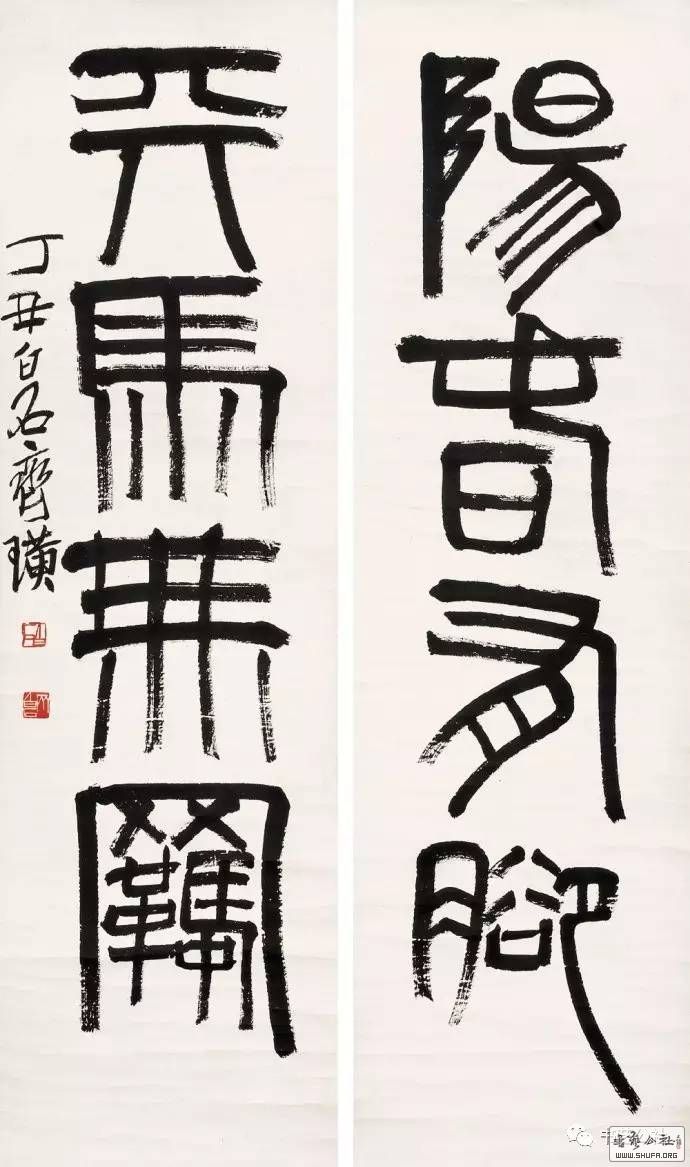 陽春有腳
天馬無羈
丁丑白石齊璜
WWW.SHUFA.ORG